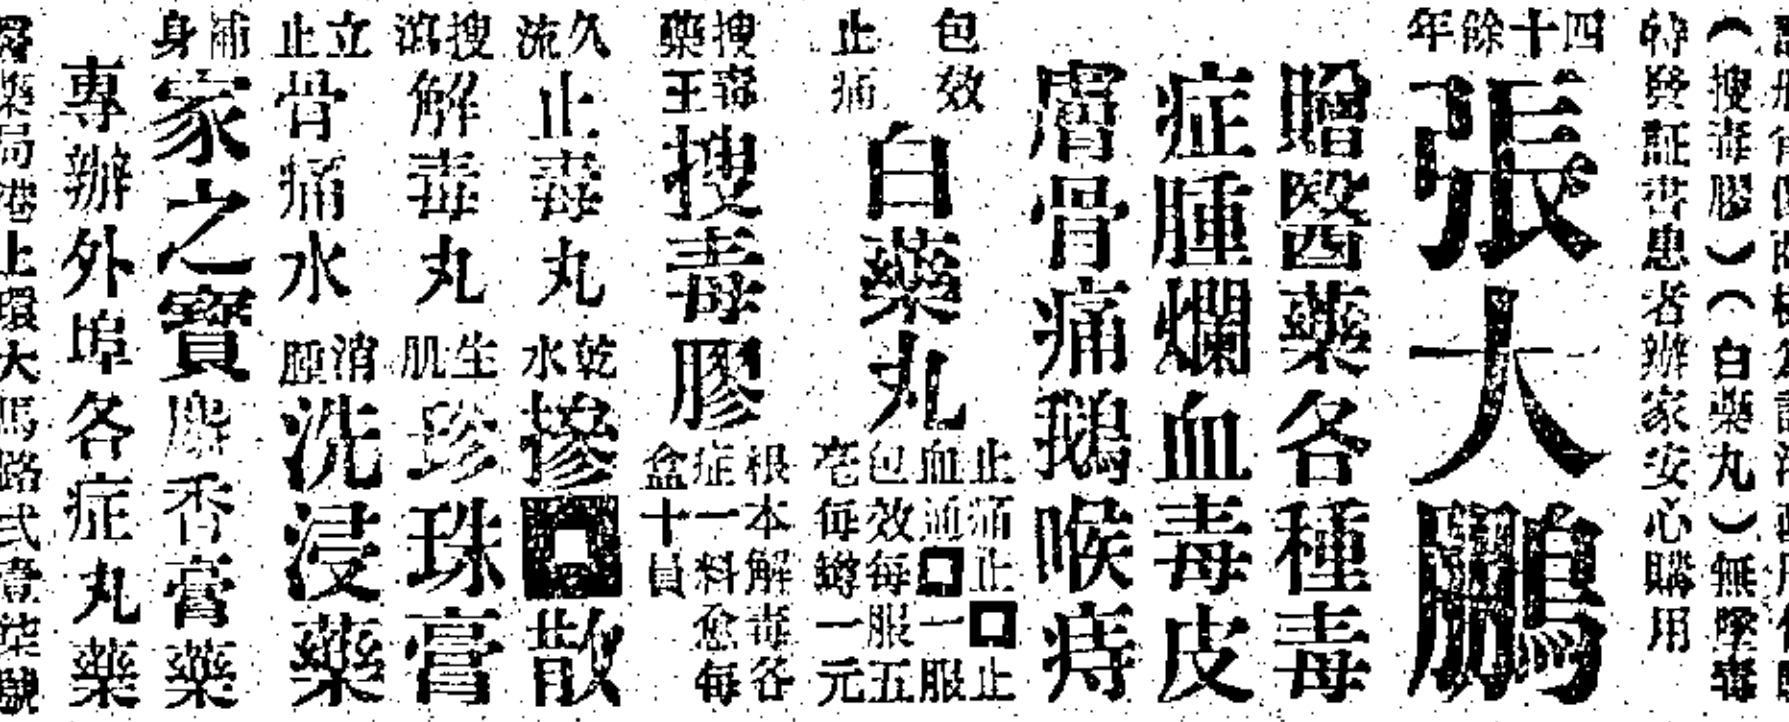 （搜毒膠）（白藥丸）無墜毒
特發証書患者辦家安心購用
四十餘年
張大鵬
贈醫藥各種毒
症腫爛血毒皮
膚骨痛鵝喉痔
包效
止痛
白藥丸
止痛止□止
血通□一服
包效每服五
毫每樽一元
搜毒
藥王
搜毒膠
根本解毒各
症一料愈每
盒十員
久流
止毒丸
乾水
摻□散
搜瀉
解毒丸
生肌
珍珠膏
立止
骨痛水
消腫
洗浸藥
補身
家之寶
麝香膏藥
專辦外埠各症丸藥
藥局港上環大馬路弍壹柒號